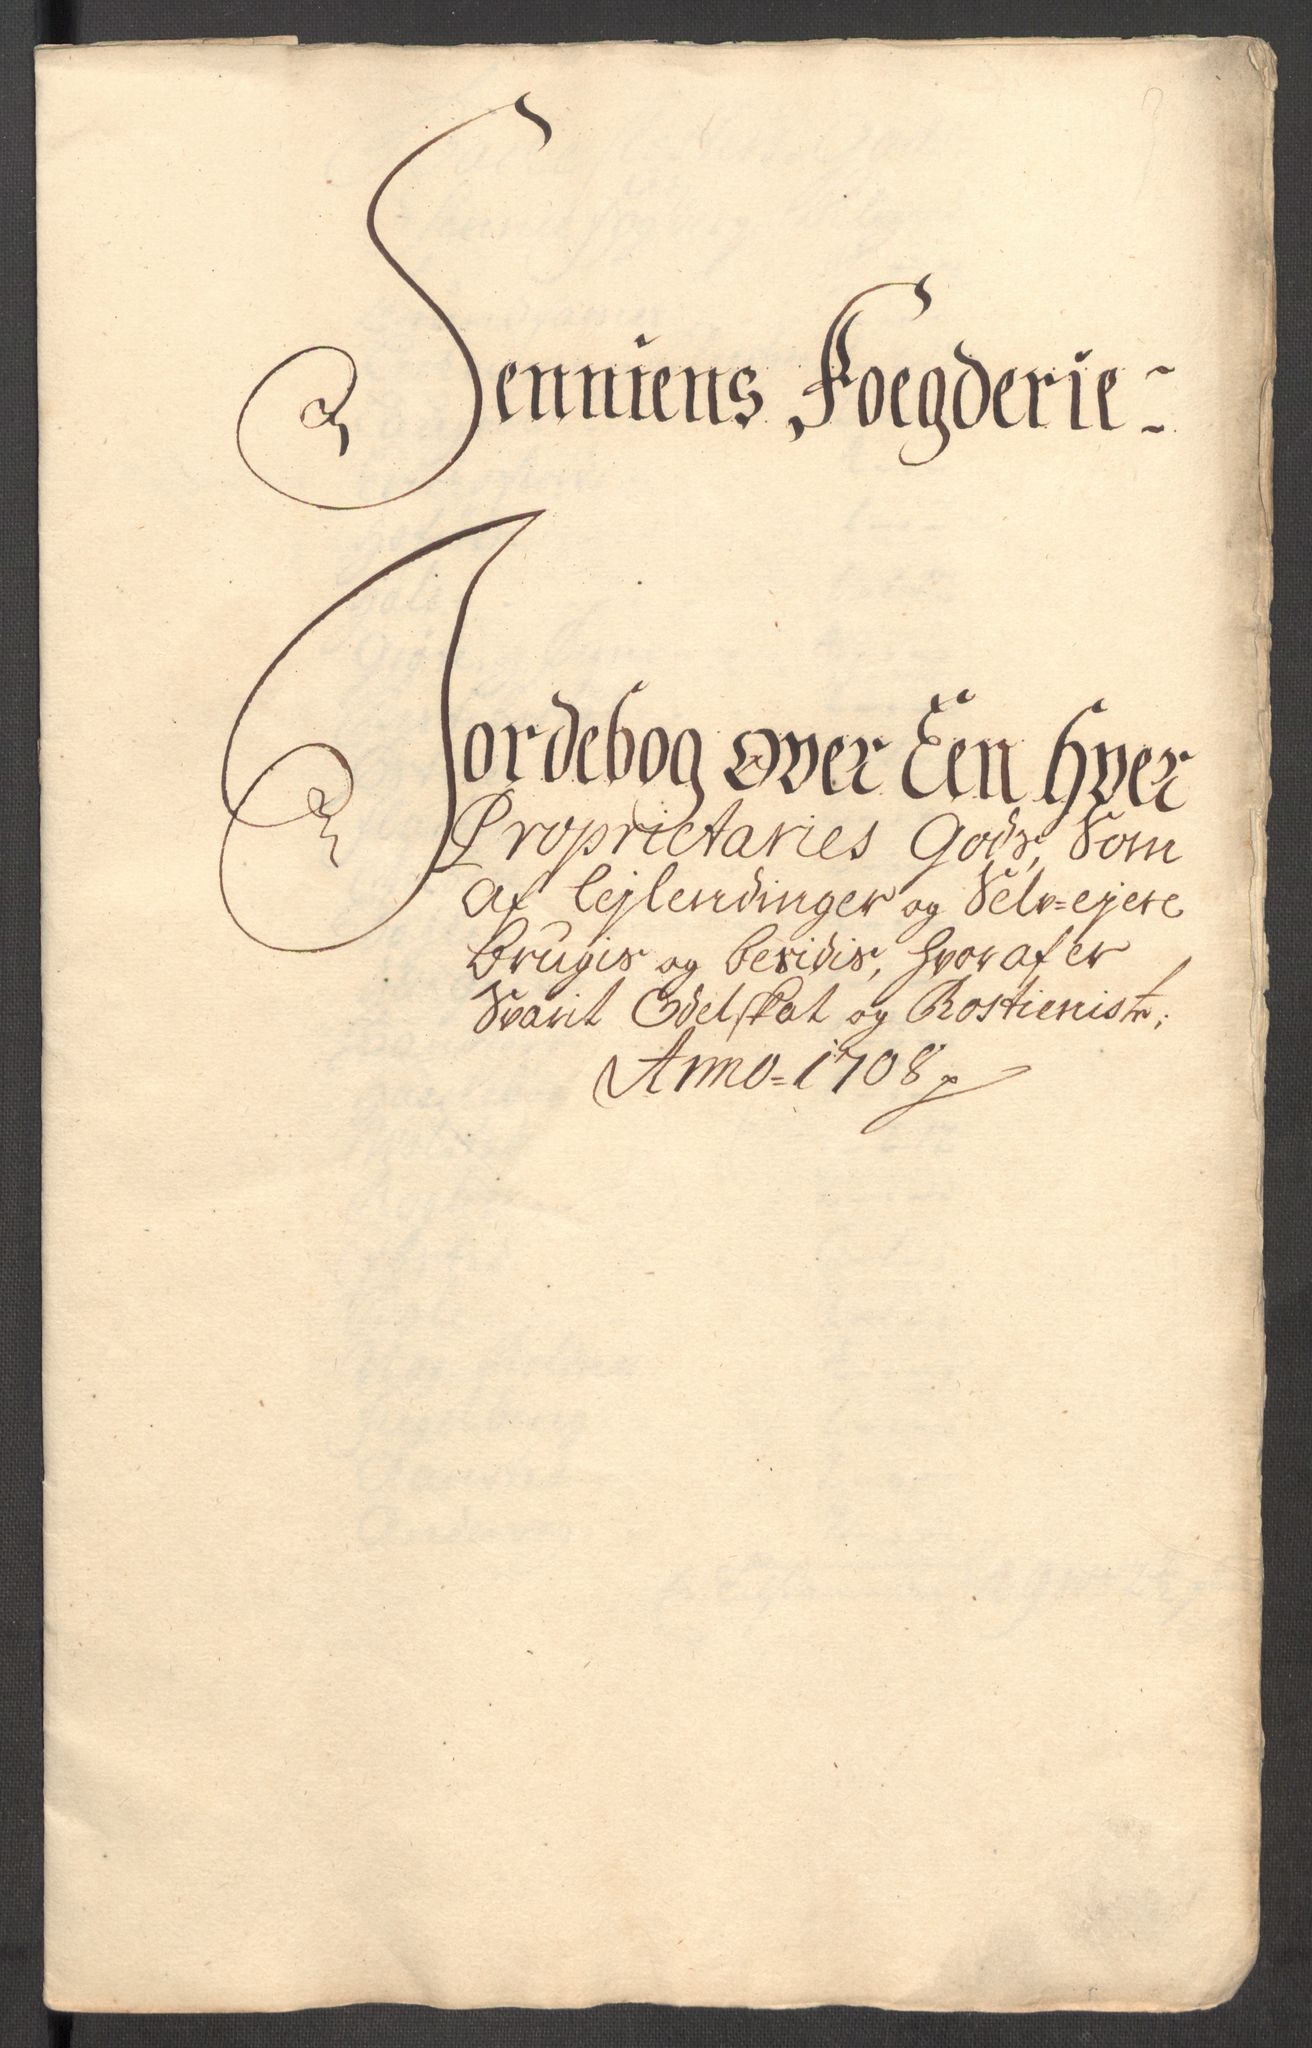 Senniens Foegderie
Jordebog over Een hver
Proprietaries Gods, Som
af lejlendinger og Selv=ejere
brugis og besidis, hvoraf er
Svarit Odelskat og Rostienist,
Anno=1708